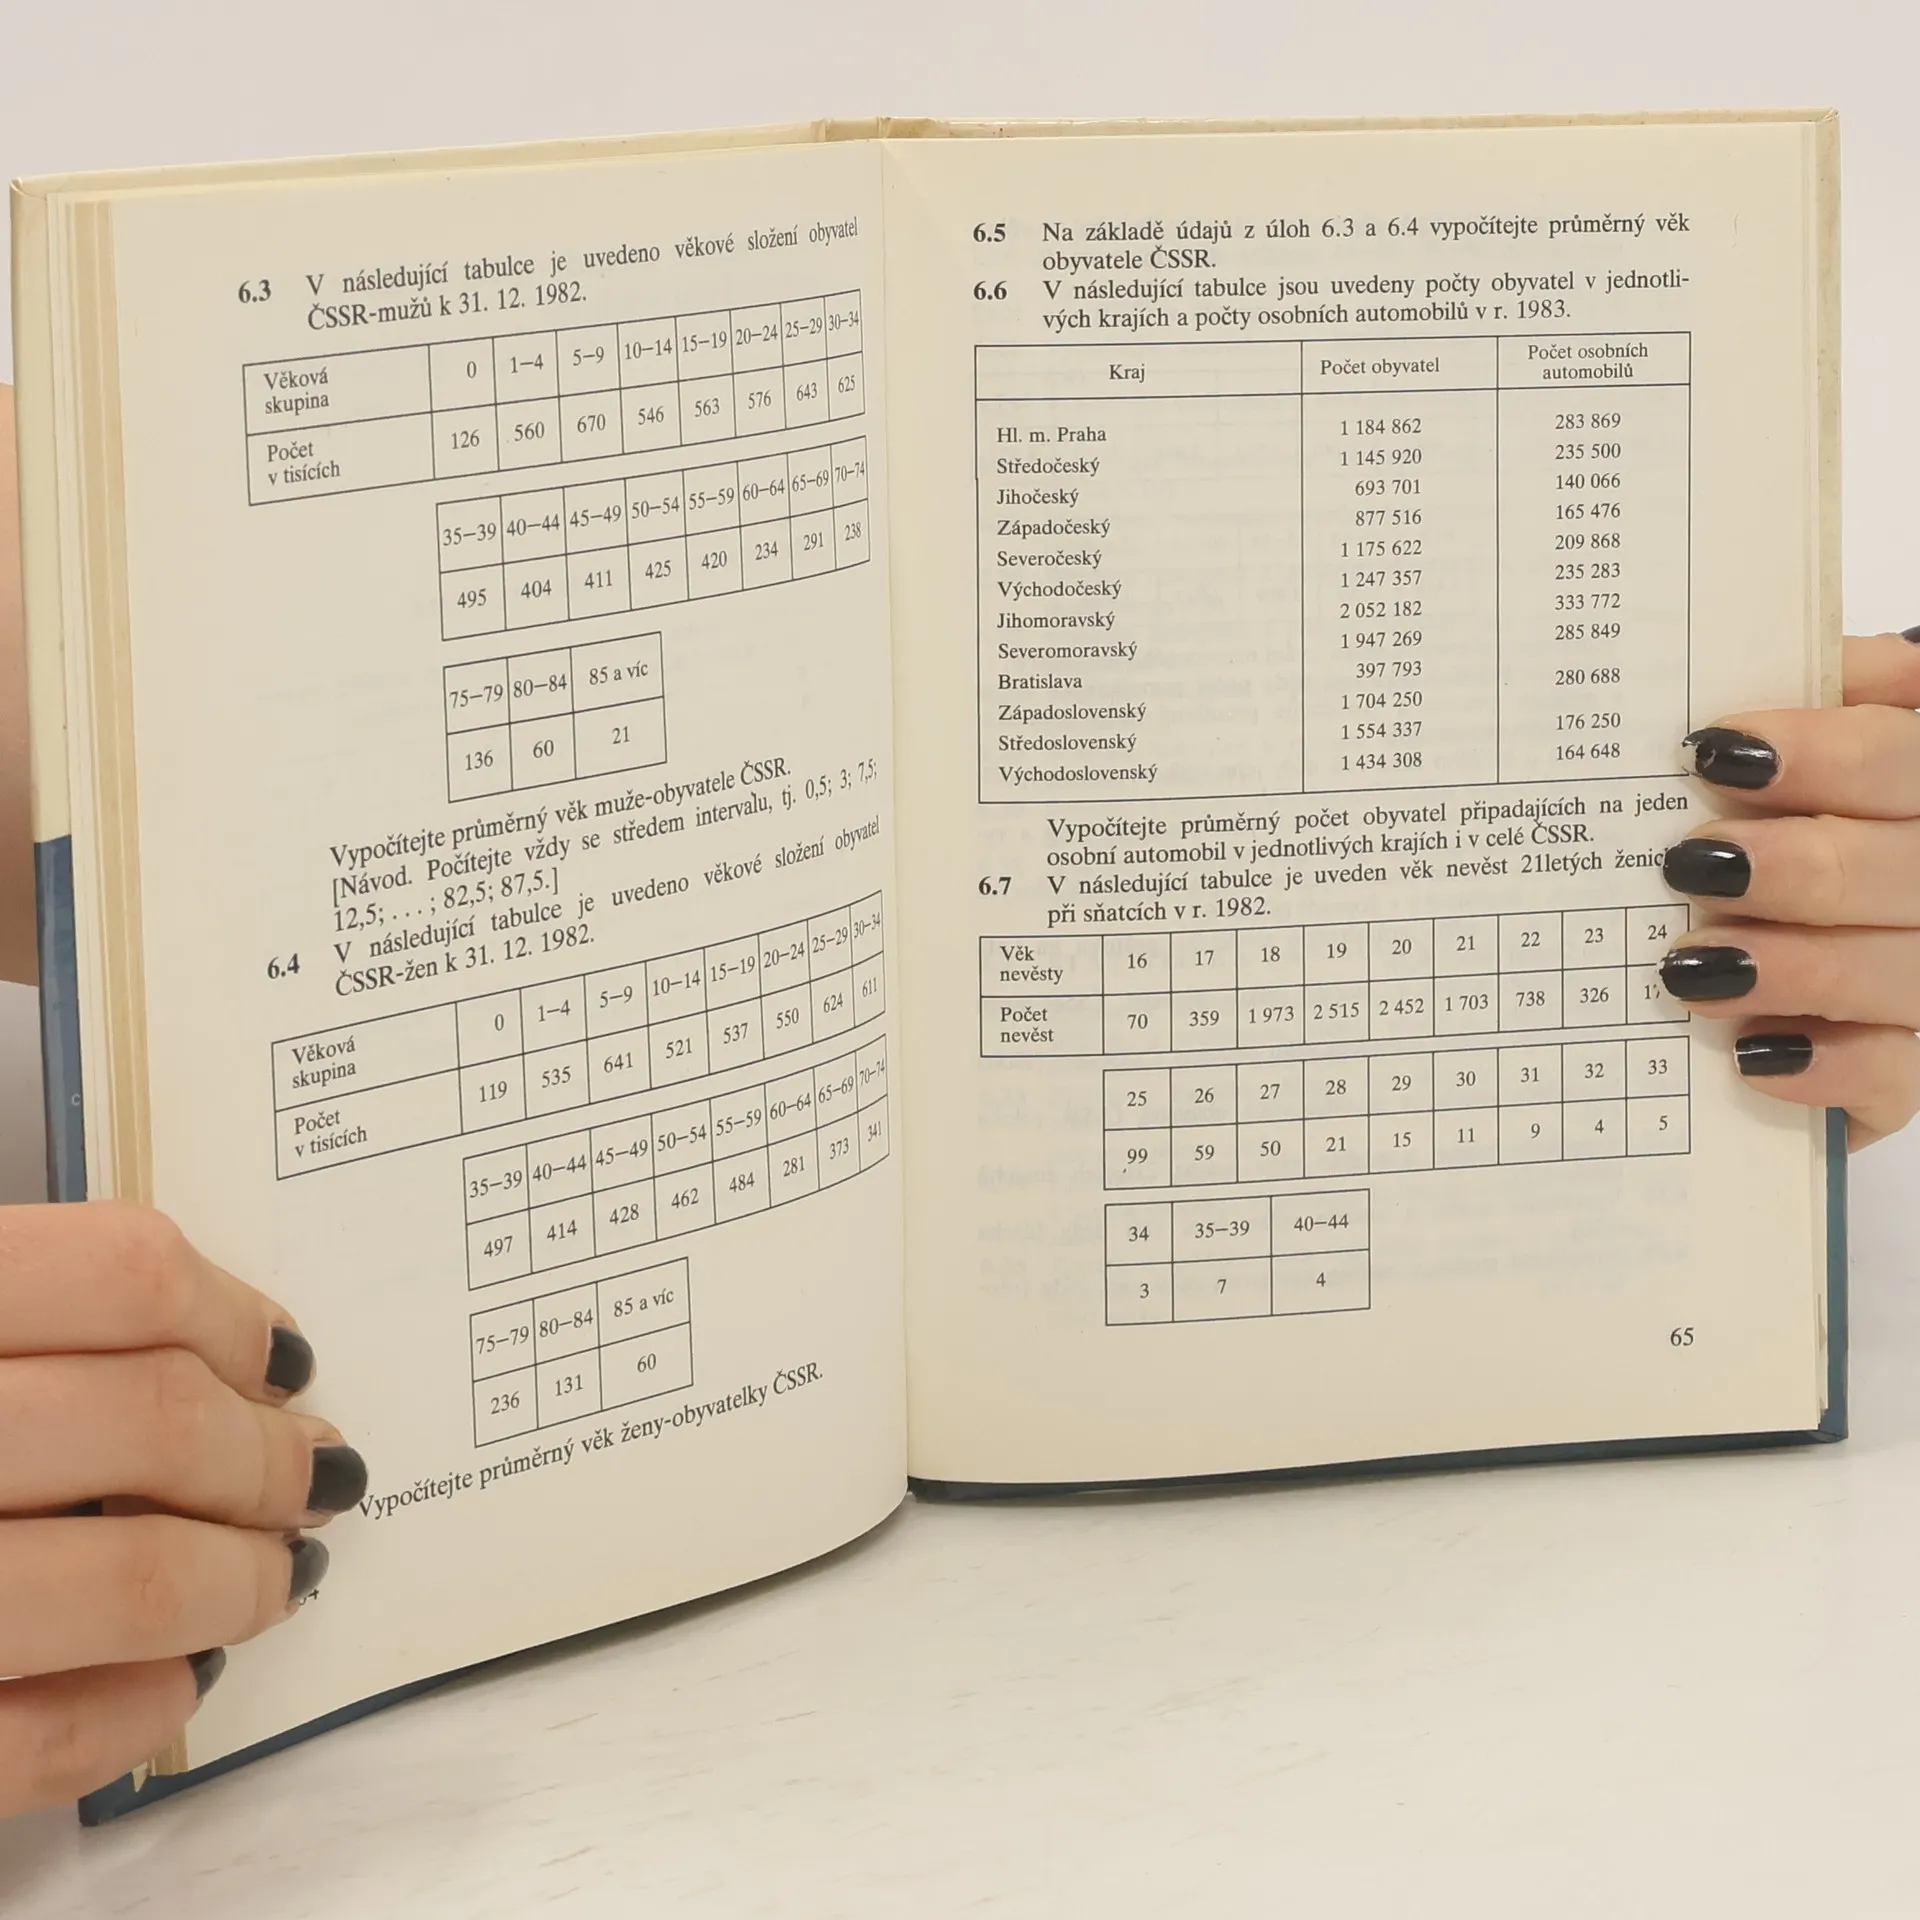 6.3 V následující tabulce je uvedeno věkové složení obyvatel
ČSSR-mužů k 31. 12. 1982.
Věková
skupina
0 1–4 5–9 10–14 15–19 20–24 25–29 30–34
Počet
v tisících
126 560 670 546 563 576 643 625
35–39 40–44 45–49 50–54 55–59 60–64 65–69 70–74
495 404 411 425 420 234 291 238
75–79 80–84 85 a víc
136 60 21
Vypočítejte průměrný věk muže-obyvatele ČSSR.
[Návod. Počítejte vždy se středem intervalu, tj. 0,5; 3; 7,5;
12,5; . . . ; 82,5; 87,5.]
6.4 V následující tabulce je uvedeno věkové složení obyvatel
ČSSR-žen k 31. 12. 1982.
Věková
skupina
0 1–4 5–9 10–14 15–19 20–24 25–29 30–34
Počet
v tisících
119 535 641 521 537 550 624 611
35–39 40–44 45–49 50–54 55–59 60–64 65–69 70–74
497 414 428 462 484 281 373 341
75–79 80–84 85 a víc
236 131 60
Vypočítejte průměrný věk ženy-obyvatelky ČSSR.
6.5 Na základě údajů z úloh 6.3 a 6.4 vypočítejte průměrný věk
obyvatele ČSSR.
6.6 V následující tabulce jsou uvedeny počty obyvatel v jednotli-
vých krajích a počty osobních automobilů v r. 1983.
Kraj Počet obyvatel Počet osobních
automobilů
Hl. m. Praha 1 184 862 283 869
Středočeský 1 145 920 235 500
Jihočeský 693 701 140 066
Západočeský 877 516 165 476
Severočeský 1 175 622 209 868
Východočeský 1 247 357 235 283
Jihomoravský 2 052 182 333 772
Severomoravský 1 947 269 285 849
Bratislava 397 793
280 688
Západoslovenský 1 704 250
Středoslovenský 1 554 337 176 250
Východoslovenský 1 434 308 164 648
Vypočítejte průměrný počet obyvatel připadajících na jeden
osobní automobil v jednotlivých krajích i v celé ČSSR.
6.7 V následující tabulce je uveden věk nevěst 21letých
při sňatcích v r. 1982.
Věk
nevěsty
16 17 18 19 20 21 22 23 24
Počet
nevěst
70 359 1 973 2 515 2 452 1 703 738 326
25 26 27 28 29 30 31 32 33
99 59 50 21 15 11 9 4 5
34 35–39 40–44
3 7 4
65